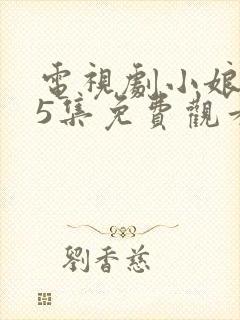 電視劇小娘
5集免費觀
劉香慈